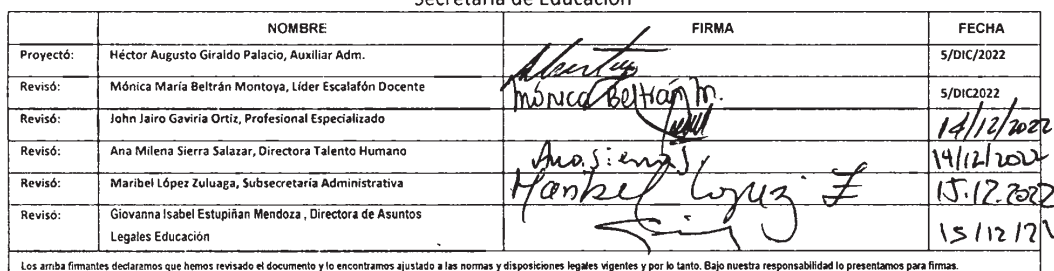 Secretaría de Educación
NOMBRE FIRMA FECHA
Proyectó: Héctor Augusto Giraldo Palacio, Auxiliar Adm. 5/DIC/2022
Revisó: Mónica María Beltrán Montoya, Líder Escalafón Docente Mónica Beltrán M. 5/DIC2022
Revisó: John Jairo Gaviria Ortiz, Profesional Especializado 14/12/2022
Revisó: Ana Milena Sierra Salazar, Directora Talento Humano Ana Sierra S. 14/12/2022
Revisó: Maribel López Zuluaga, Subsecretaría Administrativa Maribel López Z 15.12.2022
Revisó: Giovanna Isabel Estupiñan Mendoza , Directora de Asuntos
Legales Educación 15/12/
Los arriba firmantes declaramos que hemos revisado el documento y lo encontramos ajustado a las normas y disposiciones legales vigentes y por lo tanto. Bajo nuestra responsabilidad lo presentamos para firmas.